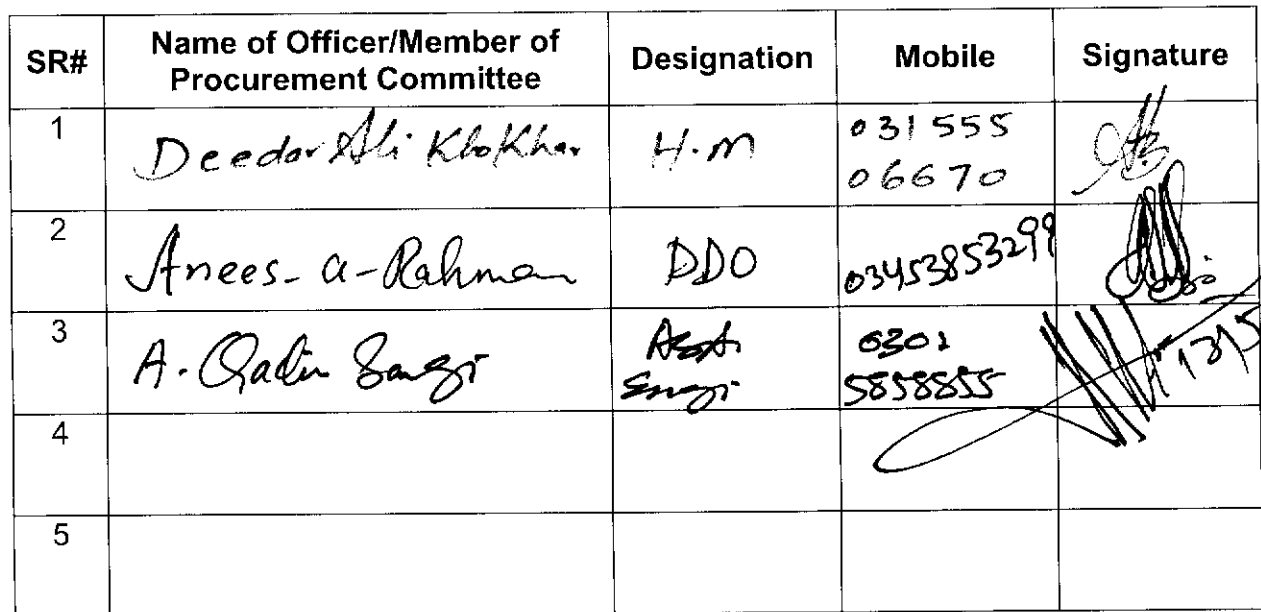 SR# Name of Officer/Member of Procurement Committee Designation Mobile Signature
1 Deedar Ali Khokhar H.M 031555 06670
2 Anees-a-Rahman DDO 03453853299
3 A. Qadir Sangi Asst. Engi 0301 5858855
4
5